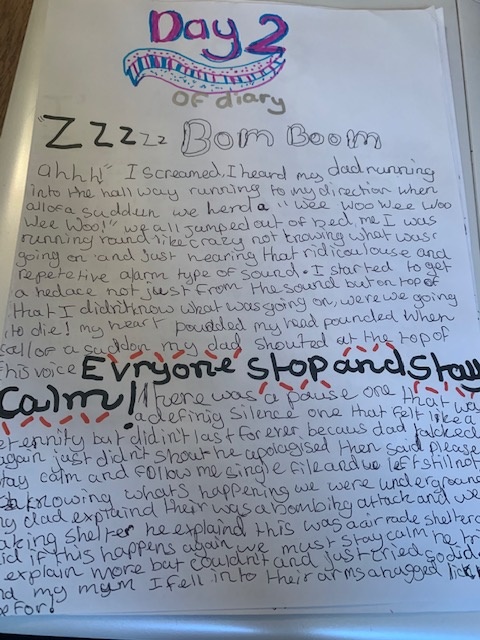 Day 2
of diary
"ZZzzz Bom Boom
ahhh" I screamed, I heard my dad running
into the hall way running to my direction when
all of a suddun we herd a "wee woo wee woo
wee woo!" we all jumped out of bed, me I was
running round like crazy not knowing what was
going on and just hearing that ridiculouse and
repetetive alarm type of sound. I started to get
a hedace not just from the sound but on top of
that I didn't know what was going on, were we going
to die! my heart pouded my head pounded when
all of a suddon my dad shouted at the top of
his voice Evryone stop and stay
calm! There was a pause one that was
a defing silence one that felt like a
eternity but didin't last for ever becaus dad talcked
again just didn't shout he apologised then said please
stay calm and follow me single file and we left still not
knowing whats happening we were underground
my dad explaind their was a bombing attack and we
taking shelter he explaind this was air rade shelter
if this happens again we must stay calm he
explain more but couldn't and just cried so did
my mum I fell into their arms a hugged
befor!